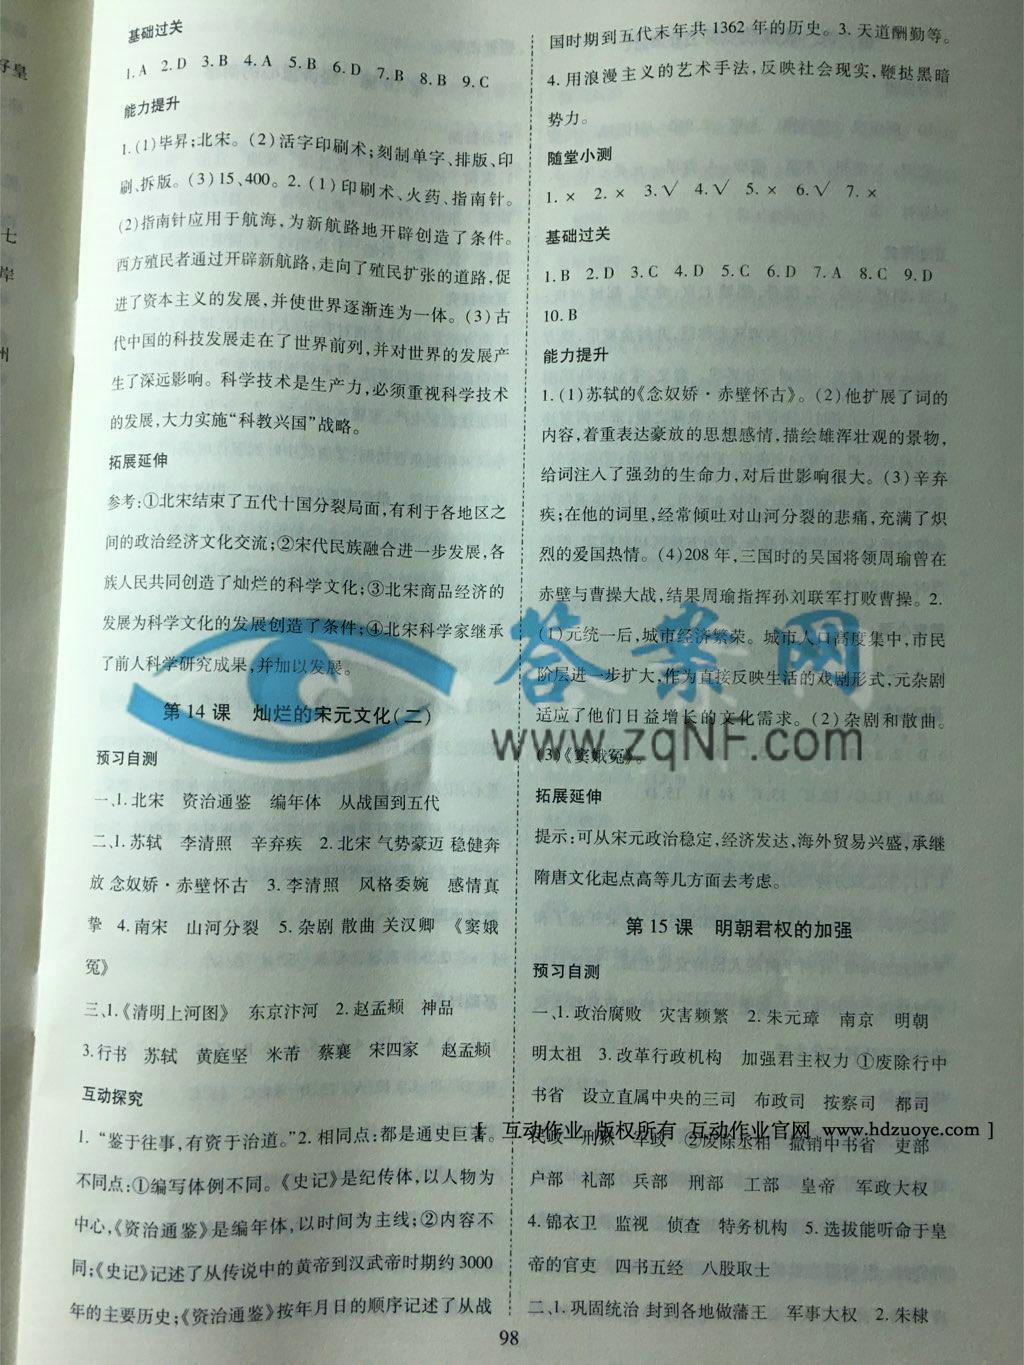 基础过关
1.A 2.D 3.B 4.A 5.B 6.D 7.B 8.B 9.C
能力提升
1.(1)毕昇;北宋。(2)活字印刷术;刻制单字、排版、印
刷、拆版。(3)15、400。2.(1)印刷术、火药、指南针。
(2)指南针应用于航海,为新航路地开辟创造了条件。
西方殖民者通过开辟新航路,走向了殖民扩张的道路,促
进了资本主义的发展,并使世界逐渐连为一体。(3)古
代中国的科技发展走在了世界前列,并对世界的发展产
生了深远影响。科学技术是生产力,必须重视科学技术
的发展,大力实施“科教兴国”战略。
拓展延伸
参考:①北宋结束了五代十国分裂局面,有利于各地区之
间的政治经济文化交流;②宋代民族融合进一步发展,各
族人民共同创造了灿烂的科学文化;③北宋商品经济的
发展为科学文化的发展创造了条件;④北宋科学家继承
了前人科学研究成果,并加以发展。
第 14 课 灿烂的宋元文化(二)
预习自测
一、1.北宋 资治通鉴 编年体 从战国到五代
二、1.苏轼 李清照 辛弃疾 2.北宋 气势豪迈 稳健奔
放 念奴娇·赤壁怀古 3.李清照 风格委婉 感情真
挚 4.南宋 山河分裂 5.杂剧 散曲 关汉卿 《窦娥
冤》
三、1.《清明上河图》 东京汴河 2.赵孟頫 神品
3.行书 苏轼 黄庭坚 米芾 蔡襄 宋四家 赵孟頫
互动探究
1.“鉴于往事,有资于治道。”2.相同点:都是通史巨著。
不同点:①编写体例不同。《史记》是纪传体,以人物为
中心,《资治通鉴》是编年体,以时间为主线;②内容不
同;《史记》记述了从传说中的黄帝到汉武帝时期约 3000
年的主要历史;《资治通鉴》按年月日的顺序记述了从战
国时期到五代末年共 1362 年的历史。3.天道酬勤等。
4.用浪漫主义的艺术手法,反映社会现实,鞭挞黑暗
势力。
随堂小测
1.× 2.× 3.√ 4.√ 5.× 6.√ 7.×
基础过关
1.B 2.D 3.C 4.D 5.C 6.D 7.A 8.C 9.D
10.B
能力提升
1.(1)苏轼的《念奴娇·赤壁怀古》。(2)他扩展了词的
内容,着重表达豪放的思想感情,描绘雄浑壮观的景物,
给词注入了强劲的生命力,对后世影响很大。(3)辛弃
疾;在他的词里,经常倾吐对山河分裂的悲痛,充满了炽
烈的爱国热情。(4)208 年,三国时的吴国将领周瑜曾在
赤壁与曹操大战,结果周瑜指挥孙刘联军打败曹操。2.
(1)元统一后,城市经济繁荣。城市人口高度集中,市民
阶层进一步扩大,作为直接反映生活的戏剧形式,元杂剧
适应了他们日益增长的文化需求。(2)杂剧和散曲。
(3)《窦娥冤》。
拓展延伸
提示:可从宋元政治稳定,经济发达,海外贸易兴盛,承继
隋唐文化起点高等几方面去考虑。
第 15 课 明朝君权的加强
预习自测
一、1.政治腐败 灾害频繁 2.朱元璋 南京 明朝
明太祖 3.改革行政机构 加强君主权力 ①废除行中
书省 设立直属中央的三司 布政司 按察司 都司
民政 刑狱 军政 ②废除丞相 撤销中书省 吏部
户部 礼部 兵部 刑部 工部 皇帝 军政大权
4.锦衣卫 监视 侦查 特务机构 5.选拔能听命于皇
帝的官吏 四书五经 八股取士
二、1.巩固统治 封到各地做藩王 军事大权 2.朱棣
98
答案网
www.zqNF.com
[ 互动作业 版权所有 互动作业官网 www.hdzuoye.com ]
好皇
七
岸
州